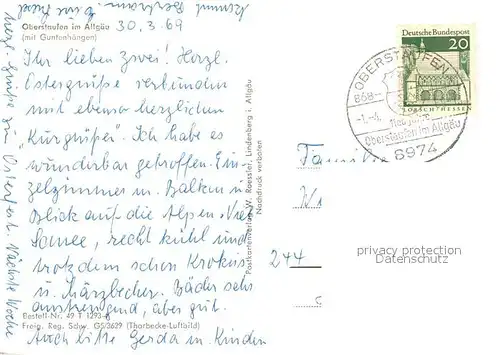 Oberstaufen im Allgäu
(mit Guntenhängen)
30.3.69
Ihr lieben zwei! Herzl.
Ostergrüße verbunden
mit ebenso herzlichen
"Kurgrüßen". Ich habe es
wunderbar getroffen. Ein-
zelzimmer m. Balkon u.
Blick auf die Alpen. Viel
Sonne, recht kühl und
trotzdem schon Krokus
u. Märzbecher. Bäder sehr
anstrengend, aber gut.
Bestell-Nr. 49 T 1293
Freig. Reg. Schw. G5/3629 (Thorbecke-Luftbild)
Auch bitte Gerda m. Kindern
herzl. Grüße zum Osterfest. Nächste Woche
kommt
Postkartenverlag W. Roessler, Lindenberg i. Allgäu
Nachdruck verboten
Deutsche Bundespost
20
LORSCH/HESSEN
OBERSTAUFEN
Oberstaufen im Allgäu
8974
Familie
244
privacy protection
Datenschutz